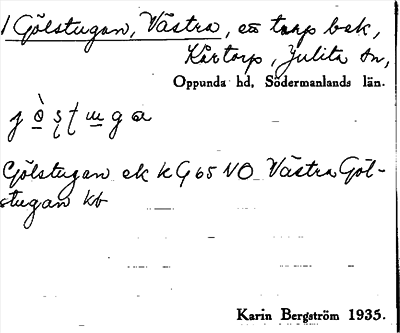 1 Gölstugan, Västra, en torp bek,
Kårtorp, Julita sn,
Oppunda hd, Södermanlands län.
j ò̱ ş ţ u̱ g a
Gölstugan ek K G 65 NO Västra Göl-
stugan kb
Karin Bergström 1935.